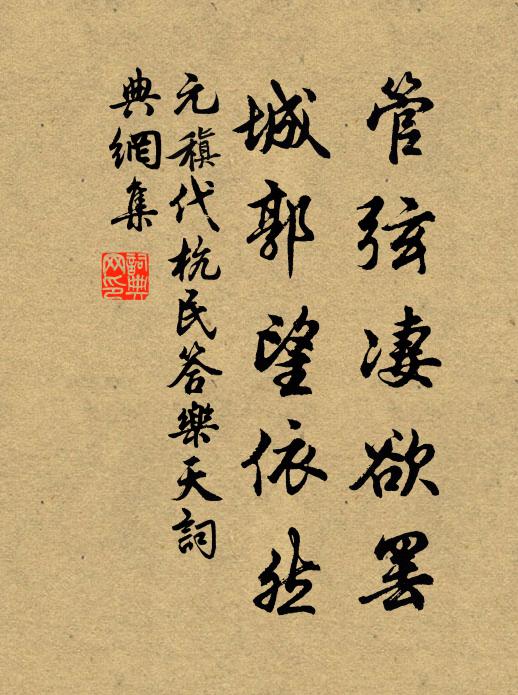 管弦凄欲罢
城郭望依然
元稹代杭民答樂天詞
典網集
詞典
网印